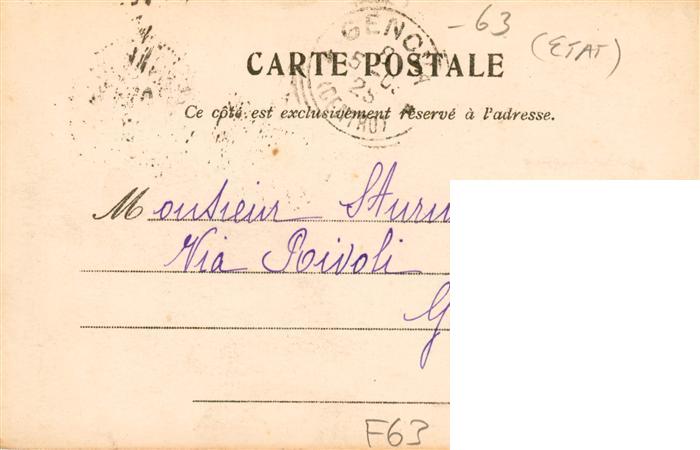 -63
(ETAT)
GENOVA
CARTE POSTALE
Ce côté est exclusivement réservé à l'adresse.
Monsieur
Via Rivoli
G
F63